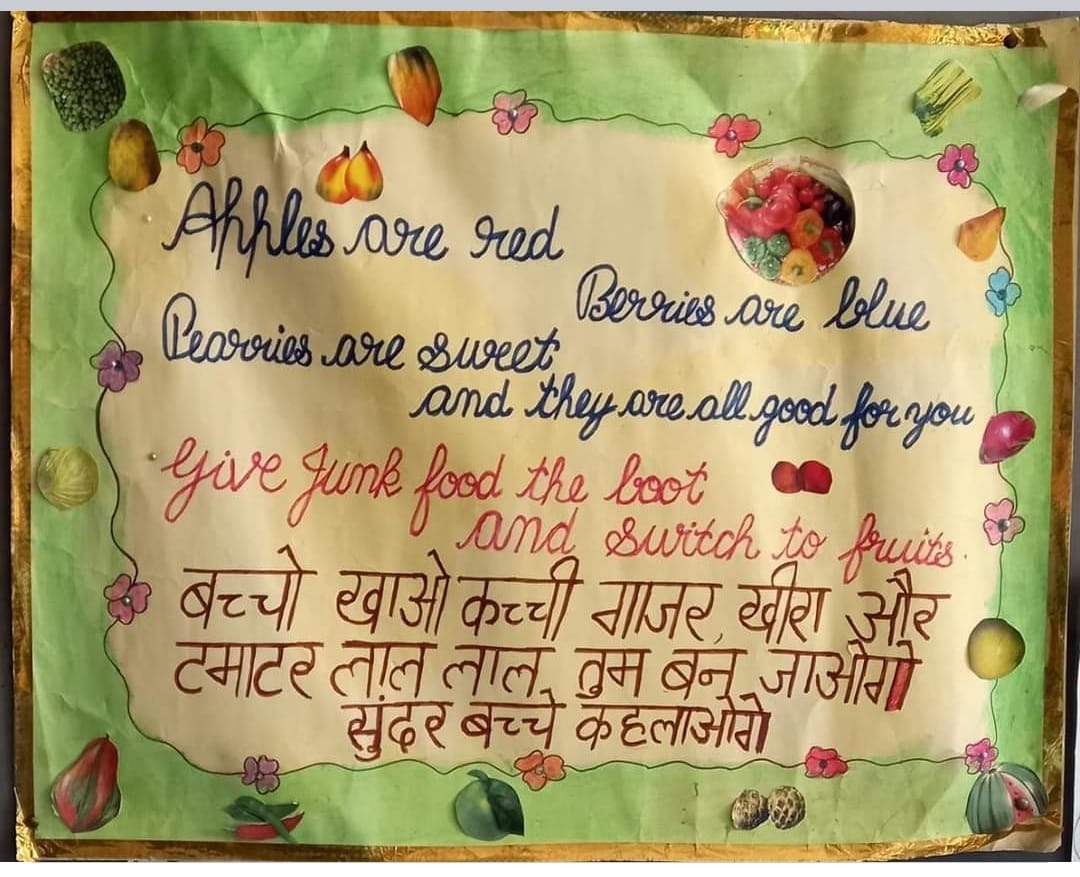 Apples are red
Berries are blue
Pearries are sweet
and they are all good for you
Give Junk food the boot
and switch to fruits.
बच्चो खाओ कच्ची गाजर, खीरा और
टमाटर लाल लाल, तुम बन जाओगे
सुंदर बच्चे कहलाओगे